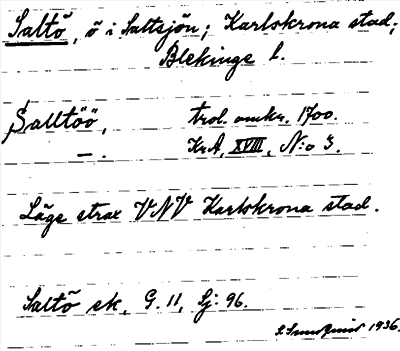 Saltö, ö i Saltsjön; Karlskrona stad;
Blekinge l.
Salltöö, trol. omkr. 1700.
—. KrA, XVIII, N:o 3.
Läge strax VNV Karlskrona stad.
Saltö sk, G. 11, Sj: 96.
1936.